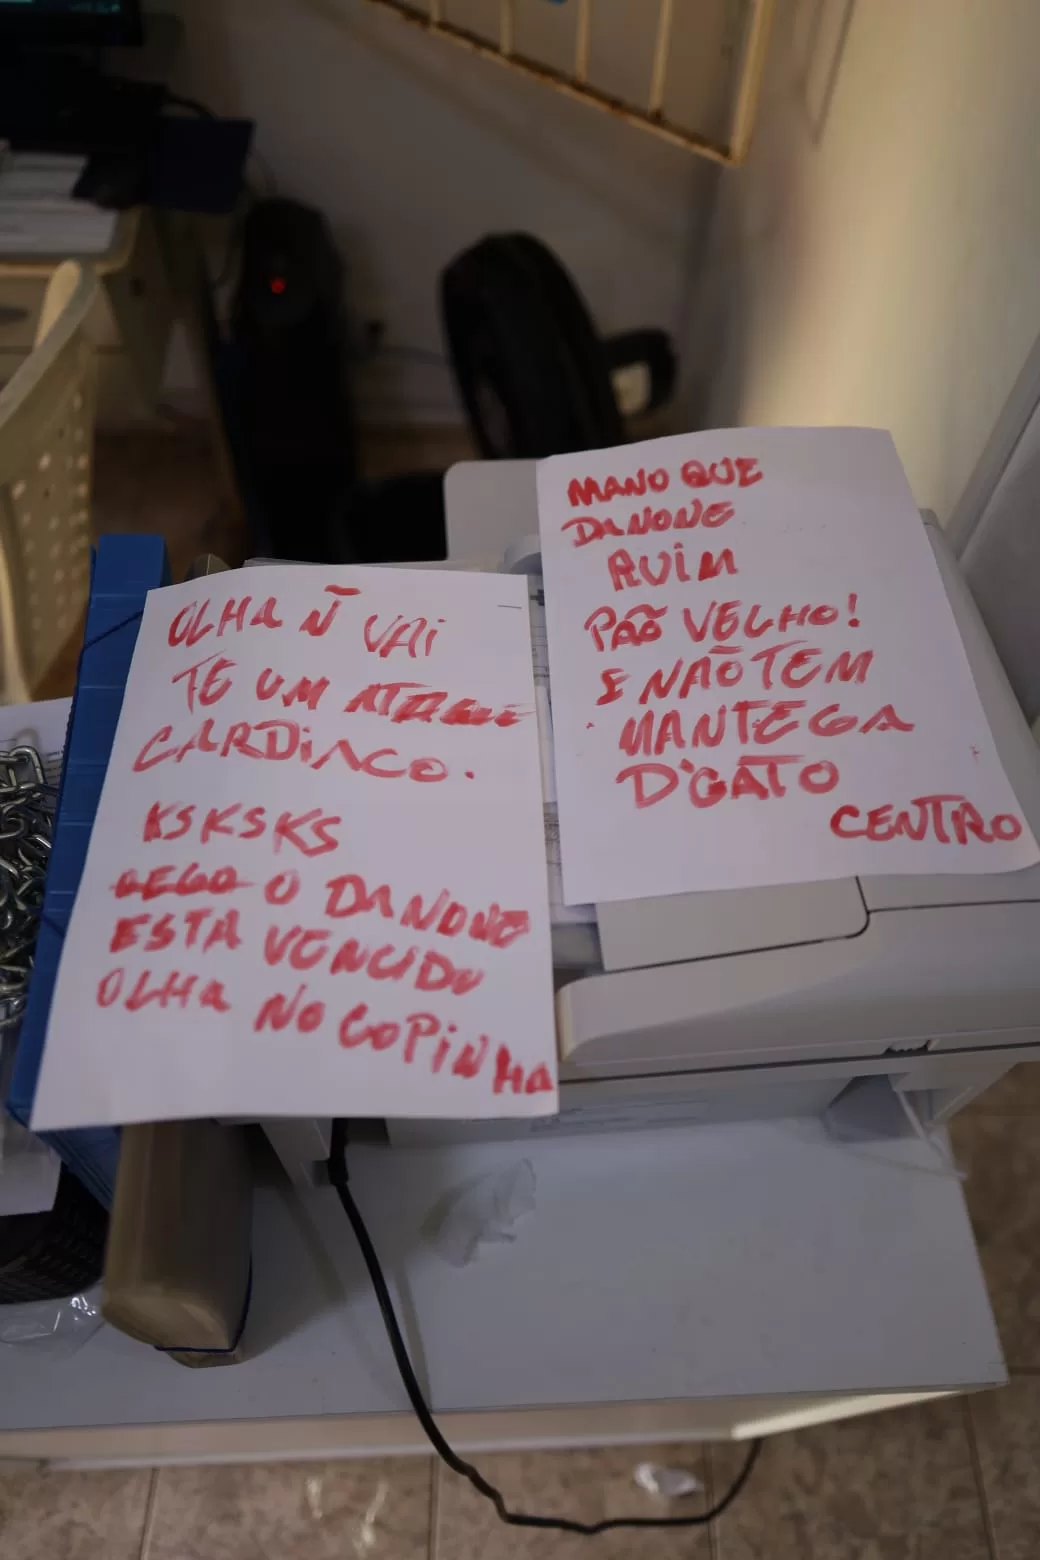 OLHA Ñ VAI
TE UM ATAQUE
CARDIACO.
KSKSKS
O DANONE
ESTA VENCIDO
OLHA NO COPINHA
MANO QUE
DANONE
RUIM
PÃO VELHO!
E NÃO TEM
MANTEGA
D'GATO
CENTRO